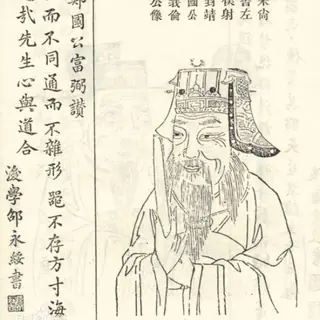 宋尚
書左
僕射
封靖
國公
倫
公像
鄭國公富弼讚
而不同通而不雜形 器不存方寸海
哉先生心與道合
後學邵永綏書